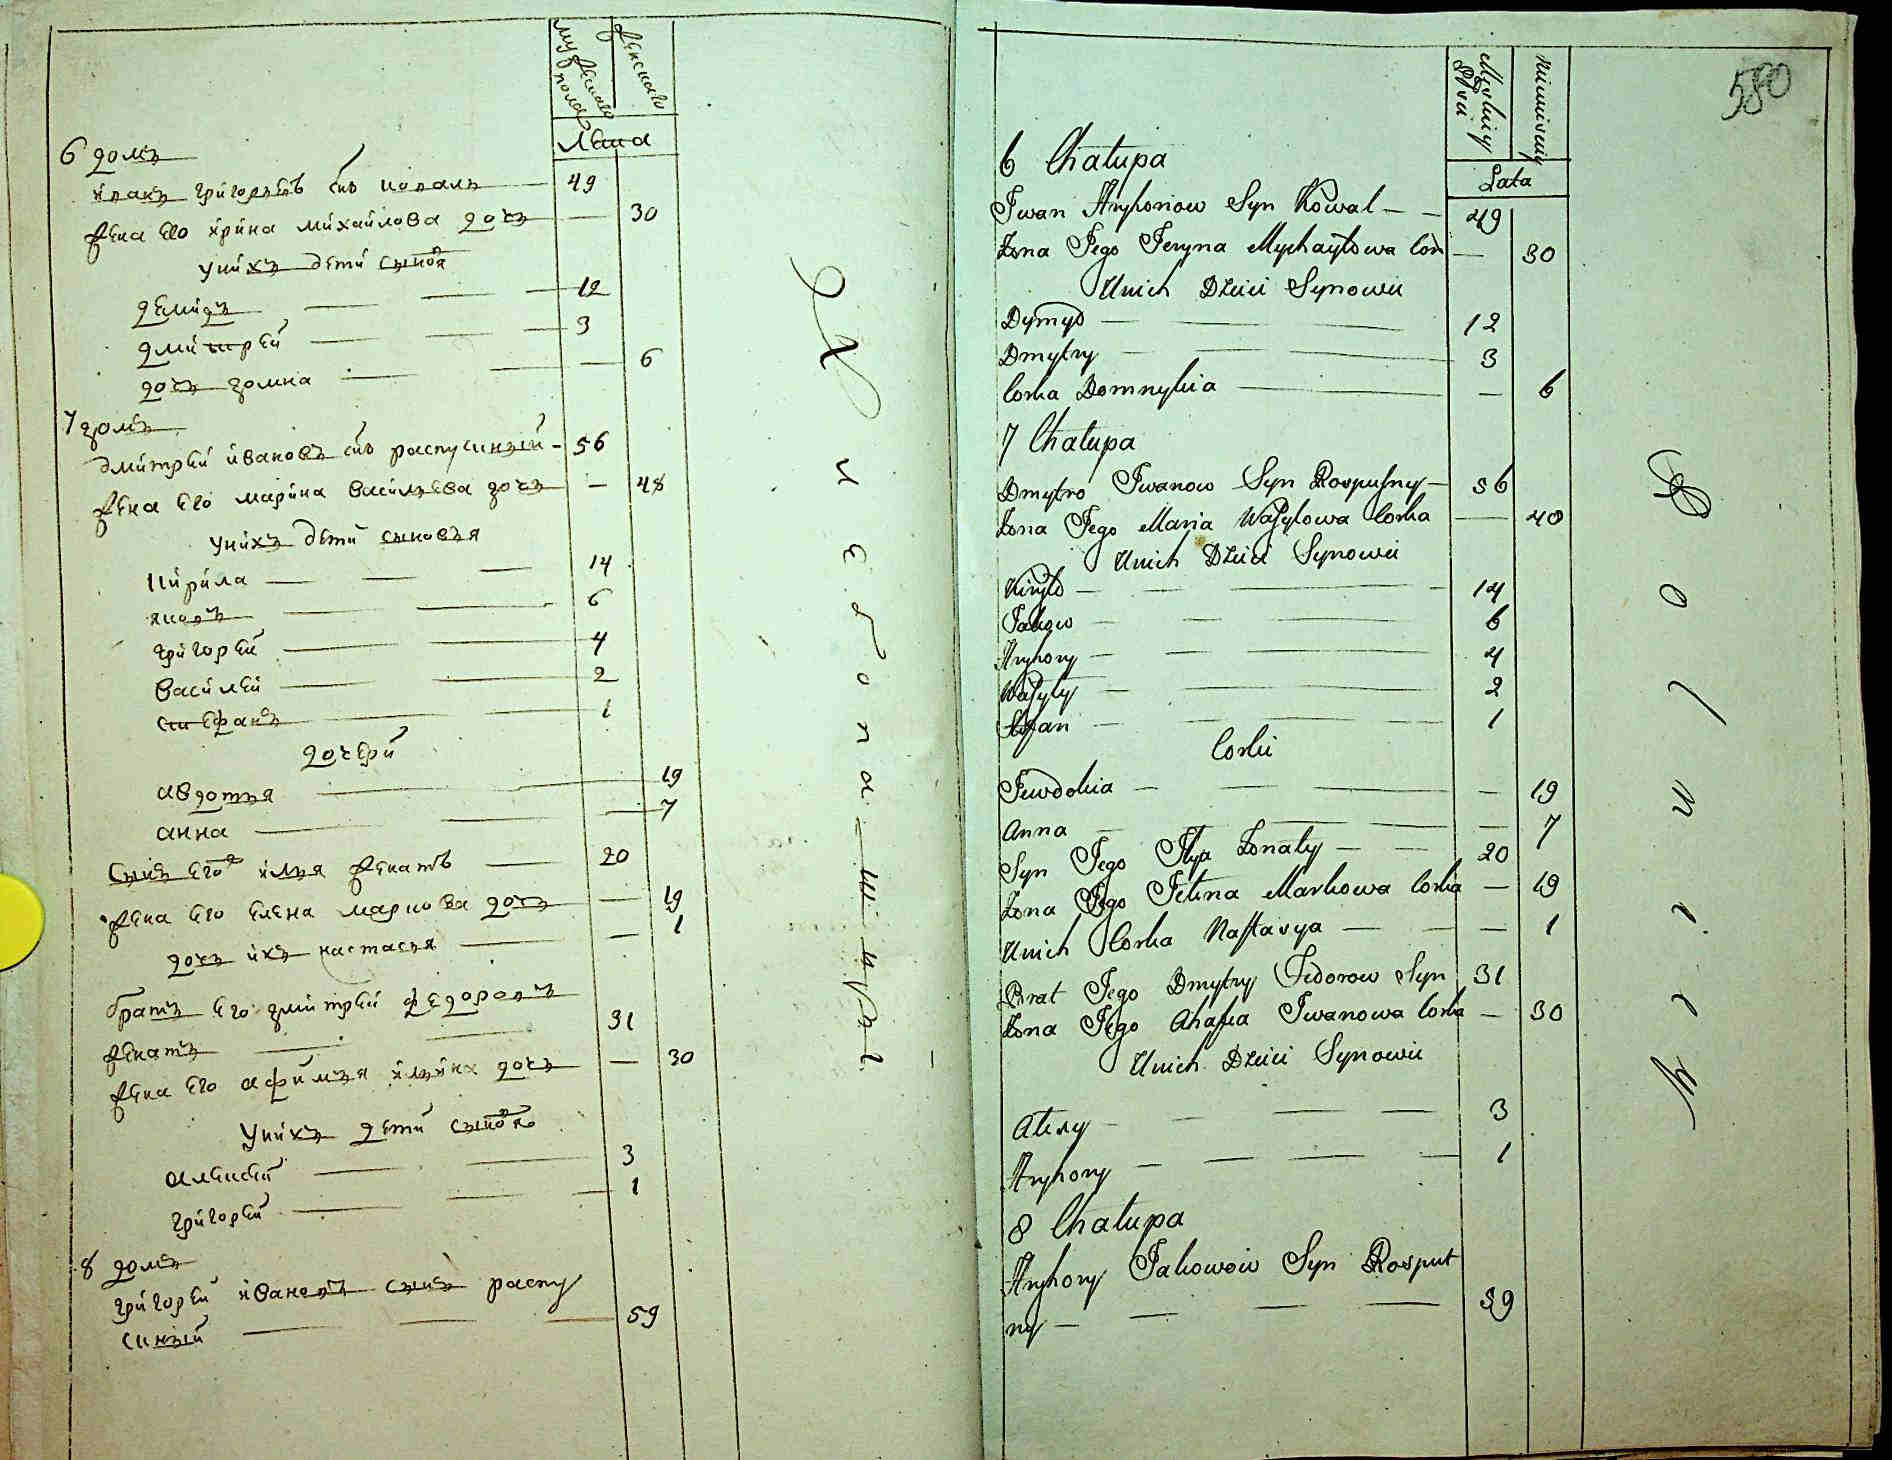 мужескаго пола
женскаго
Лета
6 домъ
иванъ григорьевъ снъ коваль — 49
жена его ирина михайлова дочь — 30
у нихъ дети сыновя
демидъ — 12
дмитрей — 3
дочь домна — 6
7 домъ
дмитрей ивановъ снъ распусный — 56
жена его марина васильева дочь — 48
у нихъ дети сыновья
кирила — 14
яковъ — 6
григорей — 4
василей — 2
стефанъ — 1
дочери
авдотья — 19
анна — 7
сынъ его илья женатъ — 20
жена его елена маркова дочь — 19
дочь ихъ настасья — 1
братъ его дмитрей федоровъ
женатъ — 31
жена его афимья дочь — 30
у нихъ дети сыновя
алексей — 3
григорей — 1
8 домъ
григорей ивановъ сынъ распу
сный — 59
580
Męskiey Płci
Niewiesciey
Lata
6 Chałupa
Iwan Hryhoriow Syn Kowal — 49
Żona Jego Jeryna Mychayłowa Cork — 30
U nich Dzieci Synowie
Dymyd — 12
Dmytry — 3
Corka Domnykia — 6
7 Chałupa
Dmytro Iwanow Syn Rospusny — 56
Żona Jego Maria Wasylowa Corka — 40
U nich Dzieci Synowie
Kiryło — 14
Jakow — 6
Hryhory — 4
Wasyly — 2
Stefan — 1
Corki
Jewdokia — 19
Anna — 7
Syn Jego Ilya Żonaty — 20
Żona Jego Jelina Markowa Corka — 19
U nich Corka Nastasya — 1
Brat Jego Dmytry Fedorow Syn 31
Żona Jego Ahafia Iwanowa Corka — 30
U nich Dzieci Synowie
Alexy — 3
Hryhory — 1
8 Chałupa
Hryhory Jakowow Syn Rosput
ny — 59